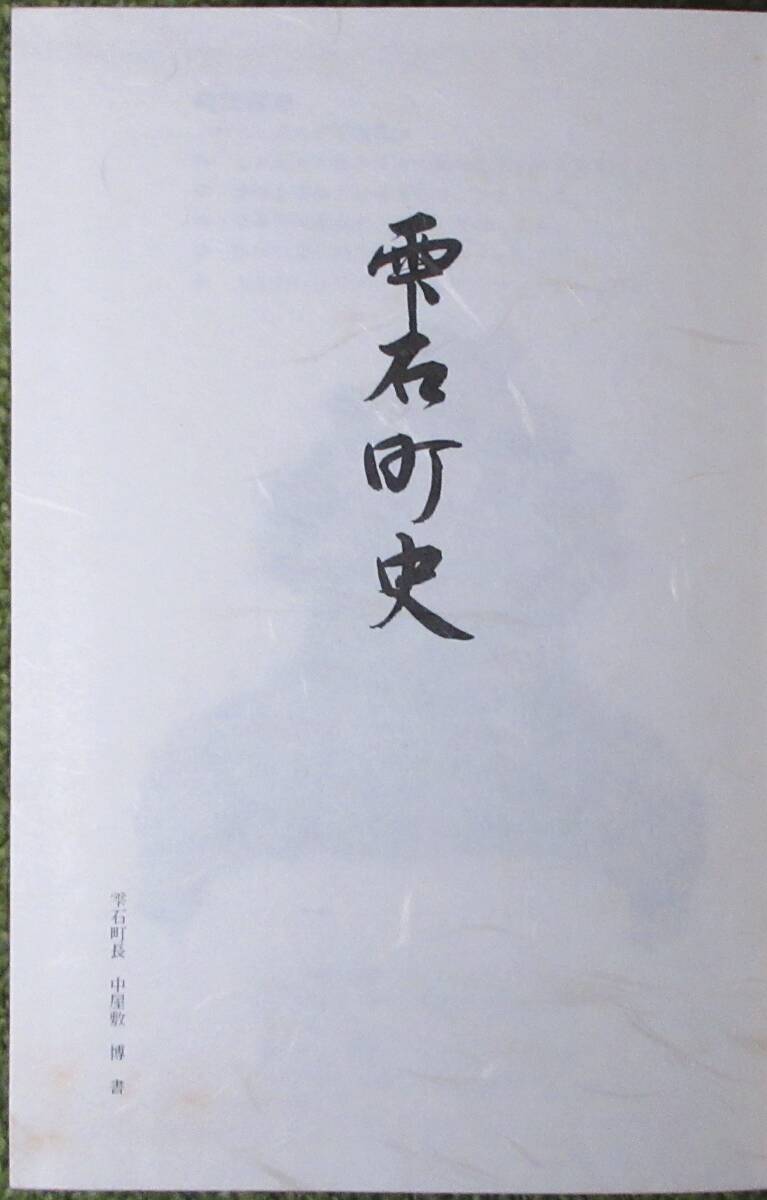 雫石町史
雫石町長 中屋敷 博 書